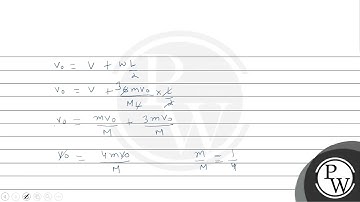 v₀ = v + ω L/2
v₀ = v + 6mv₀/ML × L/2 3
v₀ = mv₀/M + 3mv₀/M
v₀ = 4mv₀/M m/M = 1/4
P
W